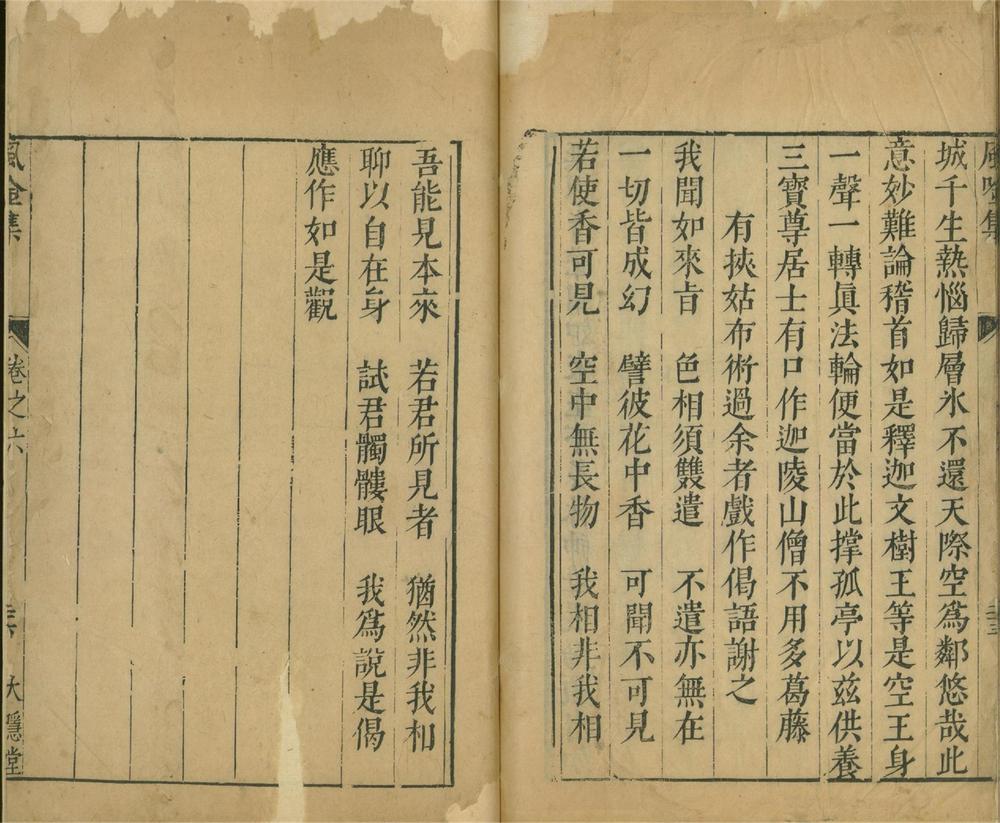 城千生熱惱歸層氷不還天際空爲鄰悠哉此
意妙難論稽首如是釋迦文樹王等是空王身
一聲一轉眞法輪便當於此撑孤亭以兹供養
三寶尊居士有口作迦陵山僧不用多葛藤
有挾姑布術過余者戲作偈語謝之
我聞如來㫖 色相須雙遣 不遣亦無在
一切皆成幻 譬彼花中香 可聞不可見
若使香可見 空中無長物 我相非我相
吾能見本來 若君所見者 猶然非我相
聊以自在身 試君髑髏眼 我爲說是偈
應作如是觀
集
卷之六
大隱堂